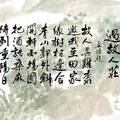 過故人莊
故人具雞黍
邀我至田家
綠樹村邊合
青山郭外斜
開軒面場圃
把酒話桑麻
待到重陽日